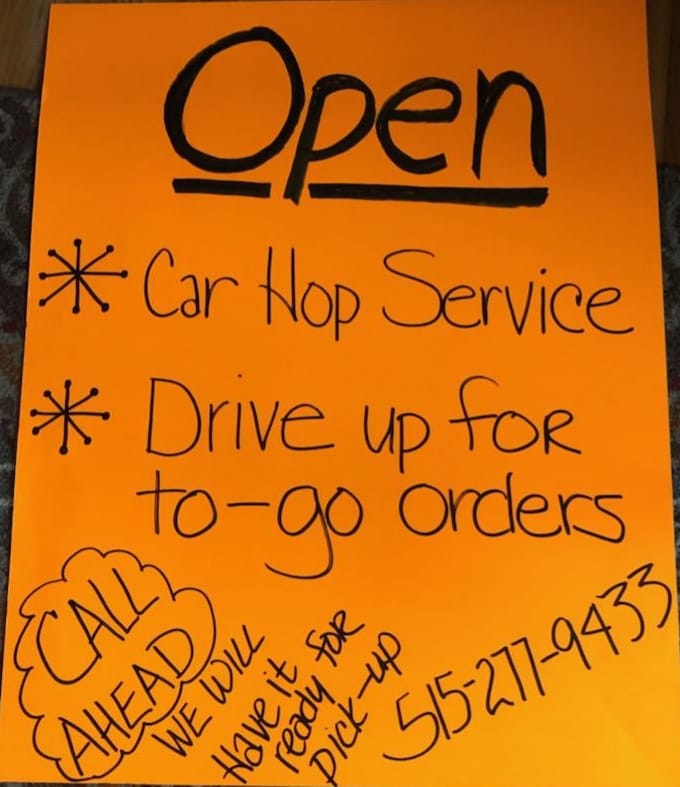 Open
Car Hop Service
Drive up for
to-go orders
CALL
AHEAD
WE WILL
Have it
ready for
pick-up
515-277-9433